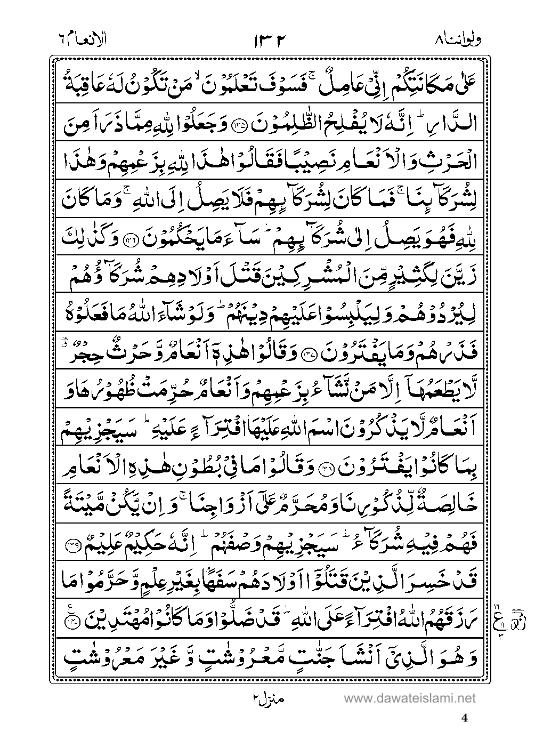 ولواننا ٨ ١٣٢ الانعام ٦
عَلٰى مَكَانَتِكُمْ اِنِّیْ عَامِلٌ ۚ فَسَوْفَ تَعْلَمُوْنَ ۙ مَنْ تَكُوْنُ لَهٗ عَاقِبَةُ
الدَّارِ ؕ اِنَّهٗ لَا یُفْلِحُ الظّٰلِمُوْنَ ﴿۱۳۵﴾ وَ جَعَلُوْا لِلّٰهِ مِمَّا ذَرَاَ مِنَ
الْحَرْثِ وَ الْاَنْعَامِ نَصِیْبًا فَقَالُوْا هٰذَا لِلّٰهِ بِزَعْمِهِمْ وَ هٰذَا
لِشُرَكَآىِٕنَا ۚ فَمَا كَانَ لِشُرَكَآىِٕهِمْ فَلَا یَصِلُ اِلَى اللّٰهِ ۚ وَ مَا كَانَ
لِلّٰهِ فَهُوَ یَصِلُ اِلٰى شُرَكَآىِٕهِمْ ؕ سَآءَ مَا یَحْكُمُوْنَ ﴿۱۳۶﴾ وَ كَذٰلِكَ
زَیَّنَ لِكَثِیْرٍ مِّنَ الْمُشْرِكِیْنَ قَتْلَ اَوْلَادِهِمْ شُرَكَآؤُهُمْ
لِیُرْدُوْهُمْ وَ لِیَلْبِسُوْا عَلَیْهِمْ دِیْنَهُمْ ؕ وَ لَوْ شَآءَ اللّٰهُ مَا فَعَلُوْهُ
فَذَرْهُمْ وَ مَا یَفْتَرُوْنَ ﴿۱۳۷﴾ وَ قَالُوْا هٰذِهٖۤ اَنْعَامٌ وَّ حَرْثٌ حِجْرٌ ۖۗ
لَّا یَطْعَمُهَاۤ اِلَّا مَنْ نَّشَآءُ بِزَعْمِهِمْ وَ اَنْعَامٌ حُرِّمَتْ ظُهُوْرُهَا وَ
اَنْعَامٌ لَّا یَذْكُرُوْنَ اسْمَ اللّٰهِ عَلَیْهَا افْتِرَآءً عَلَیْهِ ؕ سَیَجْزِیْهِمْ
بِمَا كَانُوْا یَفْتَرُوْنَ ﴿۱۳۸﴾ وَ قَالُوْا مَا فِیْ بُطُوْنِ هٰذِهِ الْاَنْعَامِ
خَالِصَةٌ لِّذُكُوْرِنَا وَ مُحَرَّمٌ عَلٰۤى اَزْوَاجِنَا ۚ وَ اِنْ یَّكُنْ مَّیْتَةً
فَهُمْ فِیْهِ شُرَكَآءُ ؕ سَیَجْزِیْهِمْ وَصْفَهُمْ ؕ اِنَّهٗ حَكِیْمٌ عَلِیْمٌ ﴿۱۳۹﴾
قَدْ خَسِرَ الَّذِیْنَ قَتَلُوْۤا اَوْلَادَهُمْ سَفَهًۢا بِغَیْرِ عِلْمٍ وَّ حَرَّمُوْا مَا
رَزَقَهُمُ اللّٰهُ افْتِرَآءً عَلَى اللّٰهِ ؕ قَدْ ضَلُّوْا وَ مَا كَانُوْا مُهْتَدِیْنَ ﴿۱۴۰﴾
وَ هُوَ الَّذِیْۤ اَنْشَاَ جَنّٰتٍ مَّعْرُوْشٰتٍ وَّ غَیْرَ مَعْرُوْشٰتٍ
منزل ٢
www.dawateislami.net
4